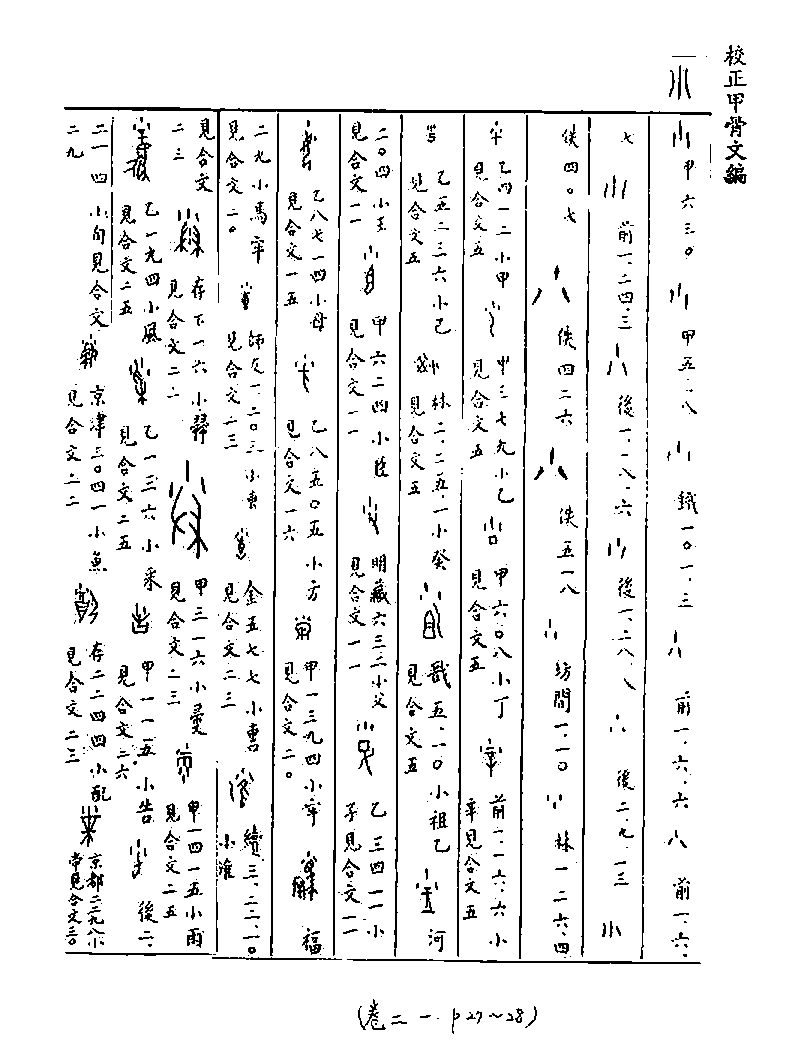 校正甲骨文編
小
甲六三〇 甲五一八 鐵一〇一.三 前一.六.六 前一.六.
七 前一.二四.三 後一.一八.六 後一.二八.八 後二.九.一三
佚四〇七 佚四二六 佚五一八 坊間一.一〇 林一二六.四
乙四一二小甲見合文五 甲三七九小乙見合文五 甲六〇八小丁見合文五 前一.一六.六小辛見合文五
乙五二三六小己見合文五 林二.二五.一小癸見合文五 戩五.一〇小祖乙見合文五 河
二〇四小王見合文一一 甲六二四小臣見合文一一 明藏六三二小父見合文一一 乙三四一一小子見合文一一
乙八七一四小母見合文一五 乙八五〇五小方見合文一六 甲一三九四小牢見合文二〇 福
二九小馬牢見合文二〇 師友一.二〇三小 見合文二三 金五七七小 見合文二三 續三.二二.一〇小
見合文二三 存下一六小 見合文二二 甲三一六小 見合文二三 甲一四一五小雨見合文二五
乙一九四小風見合文二五 乙一三六小采見合文二五 甲一一一五小告見合文二六 後二.
二一四小旬見合文二九 京津三〇四一小魚見合文二二 存二二四四小配見合文二三 京都二二九八小 見合文三〇
(卷二 一 . p27~28)